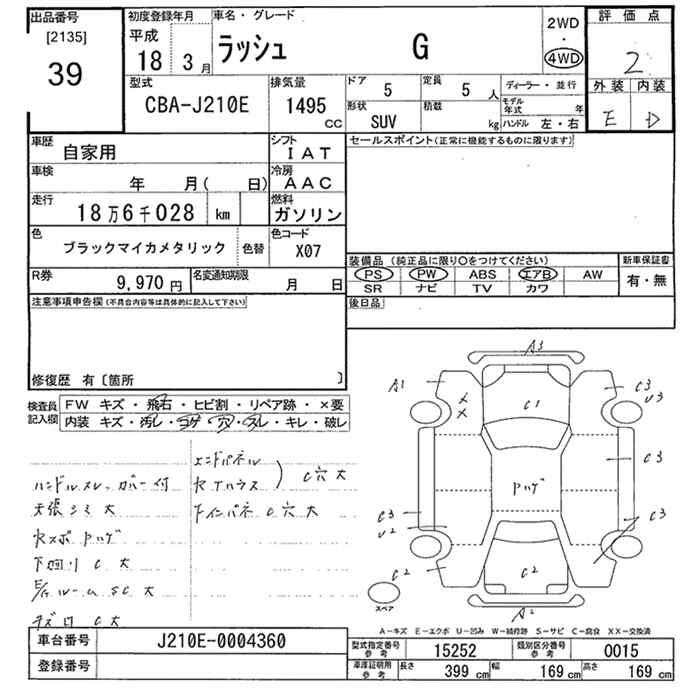 出品番号
[2135]
39
初度登録年月
平成
18 3月
車名・グレード
ラッシュ G
2WD
・
4WD
評価点
2
外装 内装
E D
型式
CBA-J210E
排気量
1495
CC
ドア 5
定員 5 人
ディーラー・並行
モデル年式 年
形状
SUV
積載 kg
ハンドル 左・右
車歴 自家用
シフト
IAT
車検 年 月( 日)
冷房
AAC
走行
18万6千028 km
燃料
ガソリン
色
ブラックマイカメタリック
色替
色コード
X07
R券
9,970 円
名変通知期限
月 日
セールスポイント(正常に機能するものに限ります)
装備品 (純正品に限り○をつけてください)
新車保証書
PS PW ABS エアB AW
SR ナビ TV カワ
有・無
後日品
注意事項申告欄(不具合内容等は具体的に記入して下さい)
修復歴 有〔箇所 〕
検査員
記入欄
FW キズ・飛石・ヒビ割・リペア跡・×要
内装 キズ・汚レ・コゲ・穴・スレ・キレ・破レ
エンドパネル
ハンドルスレ、カバー付
C穴大
天張シミ大
C穴大
下回りC大
SC大
C大
A3
A1
C3
U3
C1
C3
Pハゲ
C3
U2
C3
C2
C2
A2
スペア
A-キズ E-エクボ U-凹み W-補修跡 S-サビ C-腐食 XX-交換済
車台番号
J210E-0004360
登録番号
型式指定番号
参考
15252
類別区分番号
参考
0015
車庫証明用
参考
長さ 399 cm
幅 169 cm
高さ 169 cm